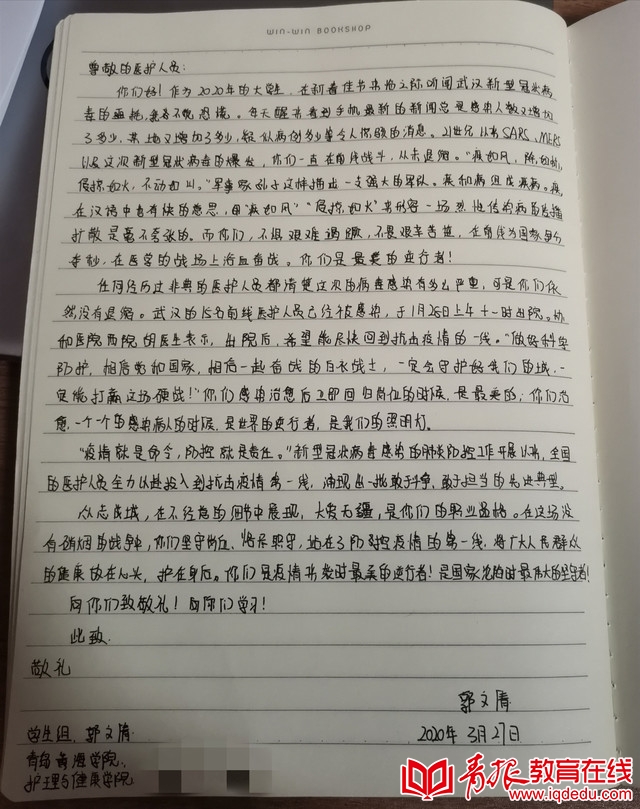 WIN-WIN BOOKSHOP
尊敬的医护人员:
你们好!作为2020年的大学生,在新春佳节来临之际听闻武汉新型冠状病
毒的噩耗,不免恐慌。每天醒来看到手机最新的新闻总是感染人数又增加
了多少,某地又增加了多少,疑似病例多少等令人惊的消息。21世纪以来SARS、MERS
以及这次新型冠状病毒的爆发,你们一直在前线战斗,从未退缩。"疾如风,徐如林,
侵掠如火,不动如山。"军事家孙子这样描述一支强大的军队。疾和病组成疾病。疾,
在汉语中也有快的意思,用"疾如风""侵掠如火"来形容一场烈性传染病的传播
扩散是毫不夸张的。而你们,不惧艰难险阻,不畏艰辛苦楚,在前线为国家
奉献,在医学的战场上浴血奋战。你们是最美的逆行者!
任何经历过非典的医护人员都清楚这次的病毒感染有多么严重,可是你们依
然没有退缩。武汉的15名前线医护人员已经被感染,于1月28日上午十一时出院。协
和医院西院胡医生表示,出院后,希望能尽快回到抗击疫情的一线。"做好科学
防护,相信党和国家,相信一起奋战的白衣战士,一定会守护好我们的城,一
定能打赢这场硬战!"你们感染治愈后立即回归岗位的时候,是最美的;你们治
愈一个个的感染病人的时候,是世界的逆行者,是我们的照明灯。
"疫情就是命令,防控就是责任。"新型冠状病毒感染的肺炎防控工作开展以来,全国
的医护人员全力以赴投入到抗击疫情第一线,涌现出一批敢于斗争、敢于担当的先进典型。
众志成城,在不经意的细节中展现,大爱无疆,是你们的职业品格。在这场没
有硝烟的战争中,你们坚守岗位、恪尽职守,站在了防控疫情的第一线,将广大人民群众
的健康放在心头,护在身后。你们是疫情来袭时最美的逆行者!是国家危险时最伟大的坚守者!
向你们致敬礼!向你们学习!
此致
敬礼
郭文清
学生组 郭文清 2020年3月27日
青岛黄海学院
护理与健康学院
青报教育在线
www.iqdedu.com